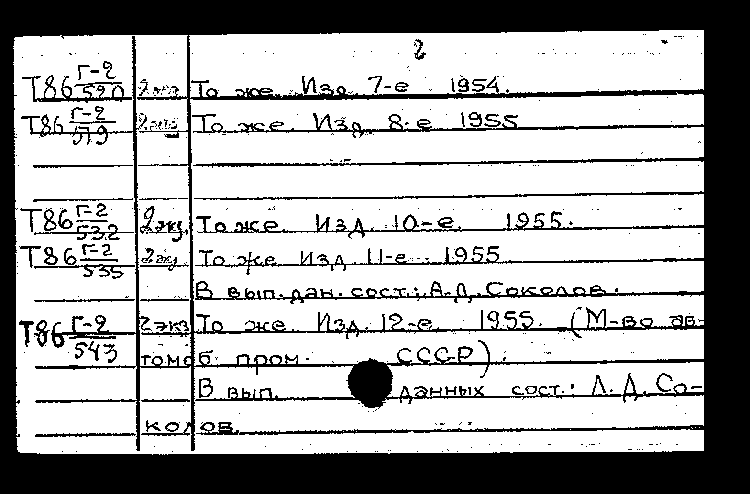 2
Т86 Г-2/520 2экз. То же. Изд. 7-е 1954.
Т86 Г-2/519 2экз То же. Изд. 8-е 1955
Т86 Г-2/532 2экз. То же. Изд. 10-е. 1955.
Т86 Г-2/535 2экз То же Изд. 11-е. 1955
В вып. дан. сост.: А.Д. Соколов.
Т86 Г-2/543 2экз То же. Изд. 12-е. 1955. (М-во ав-
томоб. пром. СССР).
В вып. данных сост.: Л.Д. Со-
колов.